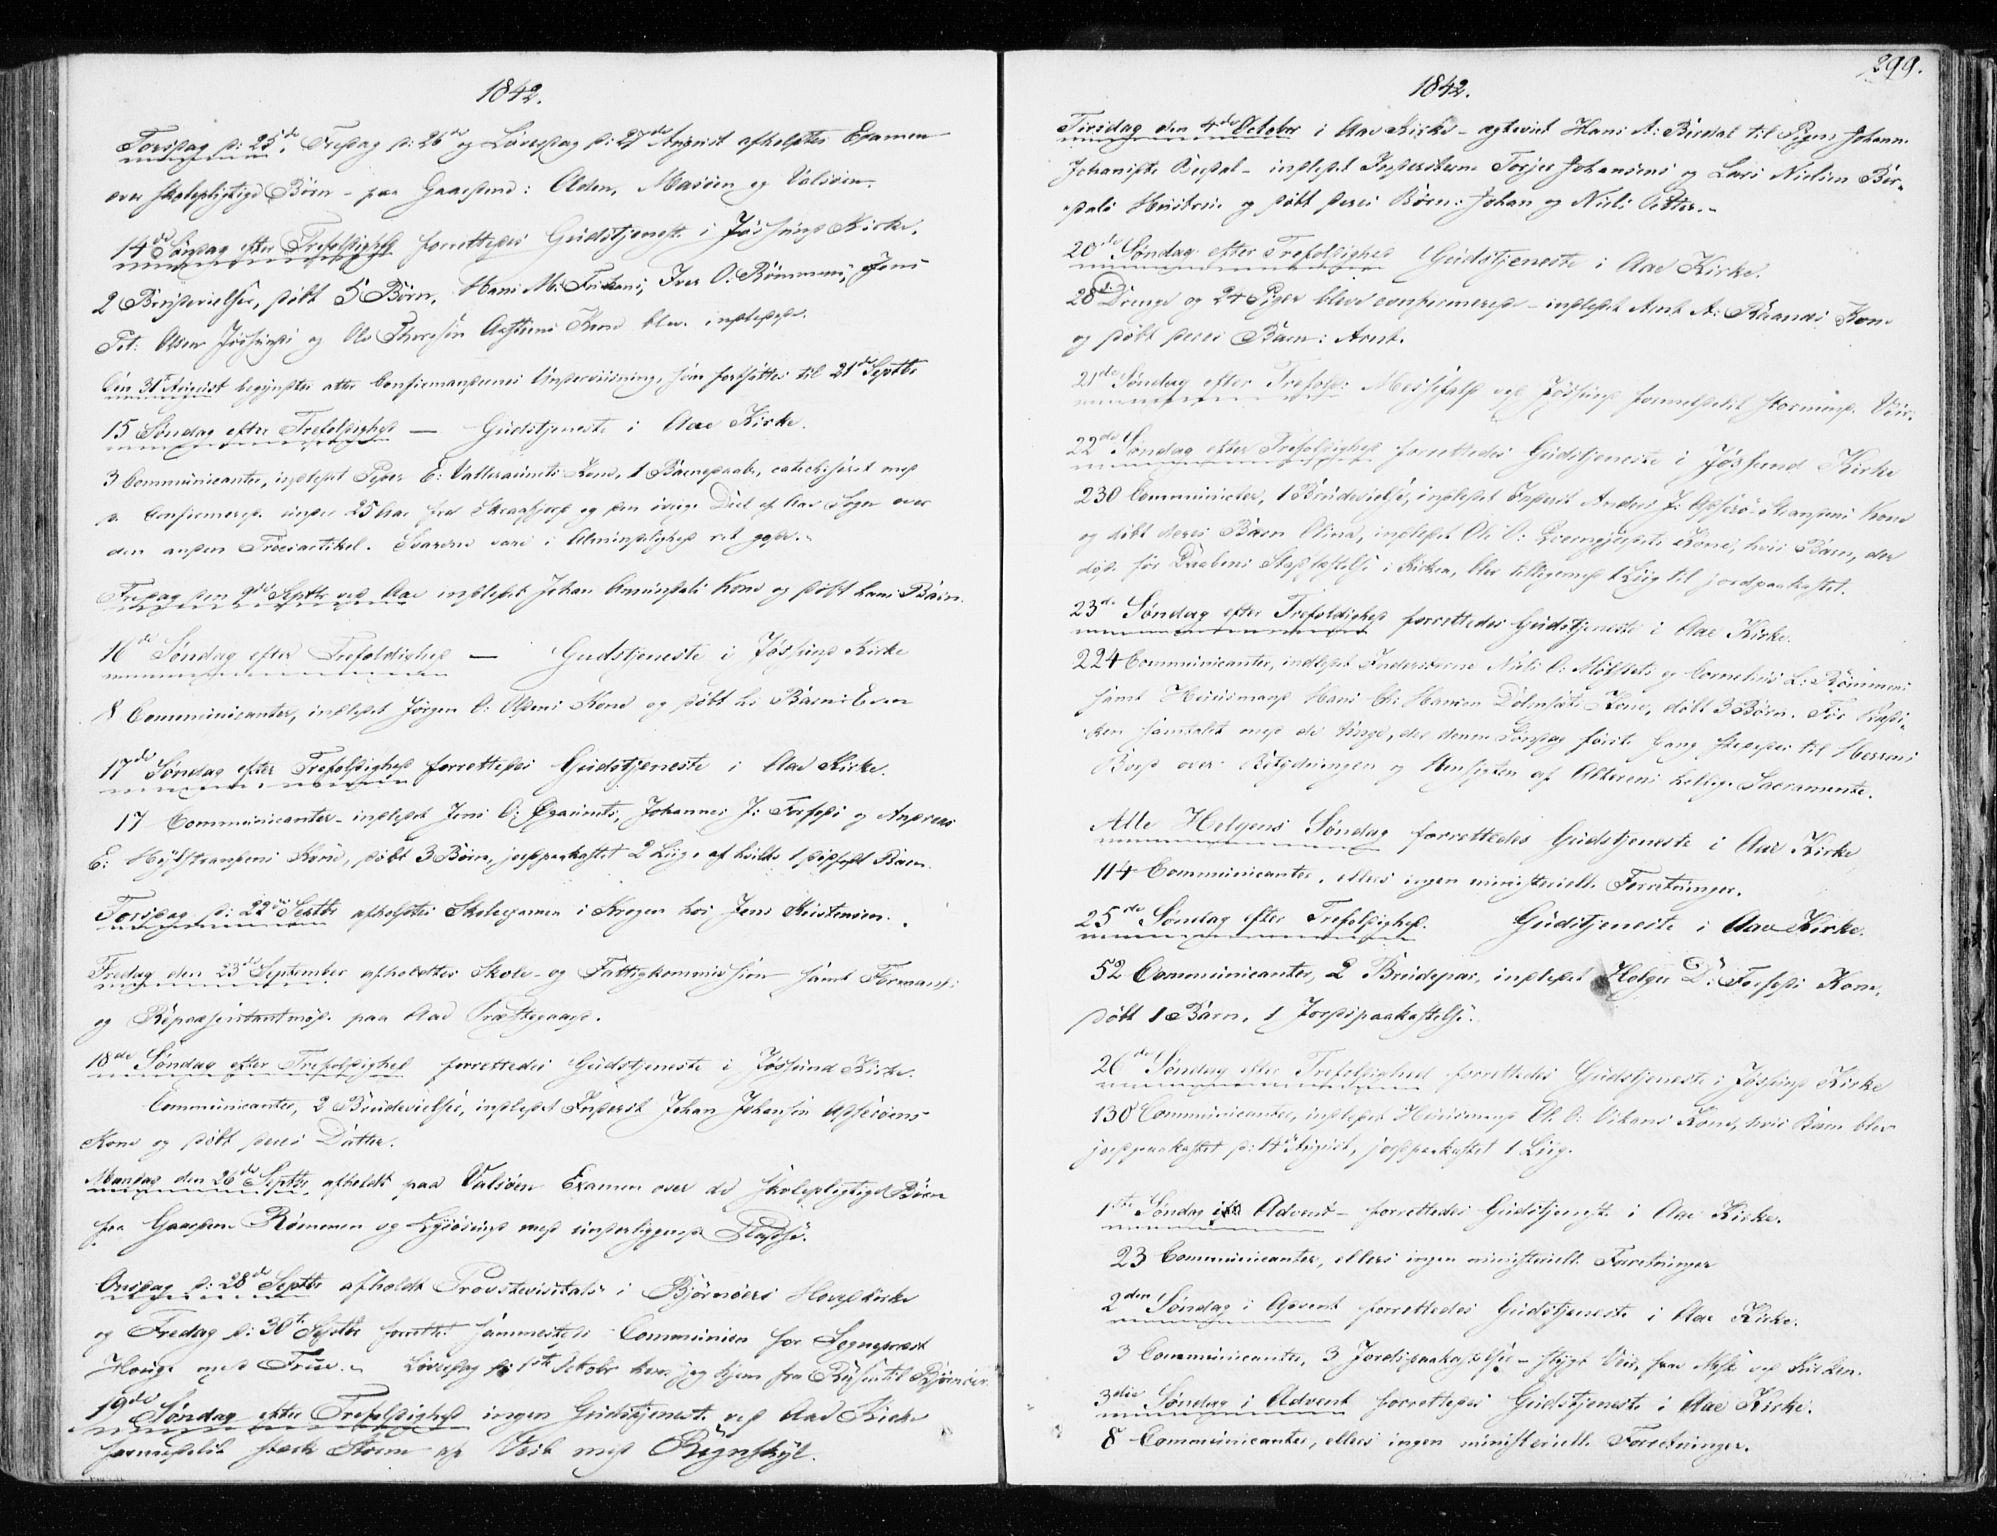 1842.
Torsdag d: 25de, Fredag d: 26de og Løverdag d: 27de August afholdtes Examen
over skolepligtige Børn - paa Gaardene: Olden, Masøen og Valsøen.
14de Søndag efter Trefoldighed forrettedes Gudstjeneste i Jøssund Kirke.
2 Brudevielser, døbt 5 Børn. Hans M: Iver O. Rømmens, Jens
Pet: Olsen Jøssunds og Ole Thoresen Kone blev indledede.
Den 31te August begyndtes atter Confirmandernes Underviisning, som fortsattes til 21de Septbr
15 Søndag efter Trefoldighed — Gudstjeneste i Aae Kirke.
3 Communicanter, indledet Peder E: Valleraunets Kone, 1 Barnedaab, catechiseret med
de Confirmerede under 25 Aar fra og den øvrige Deel af Aae Sogn over
den anden Troesartikel. Svarene vare i Almindelighed ret gode.
Fredag den 9de Septbr ved Aae indledet Johan Kone og døbt hans Barn.
16de Søndag efter Trefoldighed — Gudstjeneste i Jøssund Kirke
8 Communicanter, indledet Jørgen O: Kone og døbt hs Barn: Even
17de Søndag efter Trefoldighed forrettedes Gudstjeneste i Aae Kirke.
17 Communicanter - indledet Jens O: Johannes J: og Andreas
E: Kone, døbt 3 Børn, jordpaakastet 2 Liig, af hvilke 1 dødfødt Barn.
Torsdag d: 22de Septbr afholdtes Skoleexamen i Krogen hos Jens Kristensen.
Fredag den 23de September afholdtes Skole- og Fattigkommission samt Formands-
og Repræsentantmøde paa Aae Præstegaard.
18de Søndag efter Trefoldighed forrettedes Gudstjeneste i Jøssund Kirke.
Communicanter, 2 Brudevielser, indledet Inderst Johan Johansen
Kone og døbt deres Datter.
Mandag den 26de Septbr. afholdt paa Valsøen Examen over de skolepligtige Børn
fra Gaardene Rømmen og med underliggende Pladse.
Onsdag d: 28de Septbr afholdt Provstevisitats i Bjørnøers Hovedkirke
og Fredag d: 30te Septbr forrettet sammesteds Communion for Sognepræst
Houge med Frue. Løverdag d: 1ste Octobr
19de Søndag efter Trefoldighed ingen Gudstjeneste ved Aae Kirke
formedelst stærk Storm af Vest med Regnskyl.
299.
1842.
Tirsdag den 4de October i Aae Kirke - ægteviet Hans A: Birdal til Pigen Johanna
- indledet Inderstene Johansens og Lars Nielsen Bir-
dals Hustruer og døbt deres Børn: Johan og Niels Petter.
20de Søndag efter Trefoldighed Gudstjeneste i Aae Kirke.
28 Drenge og 24 Piger bleve confirmerede - indledet Arnt A: Kone
og døbt deres Barn: Arnt.
21de Søndag efter Trefold: Messefald ved Jøssund formedelst stormende Veir.
22de Søndag efter Trefoldighed forrettedes Gudstjeneste i Jøssund Kirke
230 Communicter, 1 Brudevielse, indledet Inderst Anders J. Kone
og døbt deres Barn Olina, indledet Ole O: Kone, hvis Barn, der
døde før Daabens Stadfæstelse i Kirken, blev tilligemed 1 Liig til jordpaakastet.
23de Søndag efter Trefoldighed forrettedes Gudstjeneste i Aae Kirke.
224 Communicanter, indledet Inderstene Niels O: og Cornelius L: Rømmens
samt Huusmand Hans Chr: Hansen Kone, døbt 3 Børn. Før Prædi-
ken samtalet med de Unge, der denne Søndag første Gang stededes til Herrens
Bord over Betydningen og Hensigten af Alterens hellige Sacramente.
Alle Helgens Søndag forrettedes Gudstjeneste i Aae Kirke
114 Communicanter, ellers ingen ministerielle Forretninger.
25de Søndag efter Trefoldighed. Gudstjeneste i Aae Kirke.
52 Communicanter, 2 Brudepar, indledet Holger D: Kone,
døbt 1 Barn, 1 Jordpaakastelse.
26de Søndag efter Trefoldighed forrettedes Gudstjeneste i Jøssund Kirke
130 Communicanter, indledet Huusmand Ol. O: Vikans Kone, hvis Barn blev
jordpaakastet d: 14de August, jordpaakastet 1 Liig.
1ste Søndag i Advent - forrettedes Gudstjeneste i Aae Kirke.
23 Communicanter, ellers ingen ministerielle Forretninger
2den Søndag i Advent forrettedes Gudstjeneste i Aae Kirke.
3 Communicanter, 3 Jordpaakastelser - stygt Veir, faa Msk ved Kirken.
3die Søndag i Advent forrettedes Gudstjeneste i Aae Kirke.
8 Communicanter, ellers ingen ministerielle Forretninger.